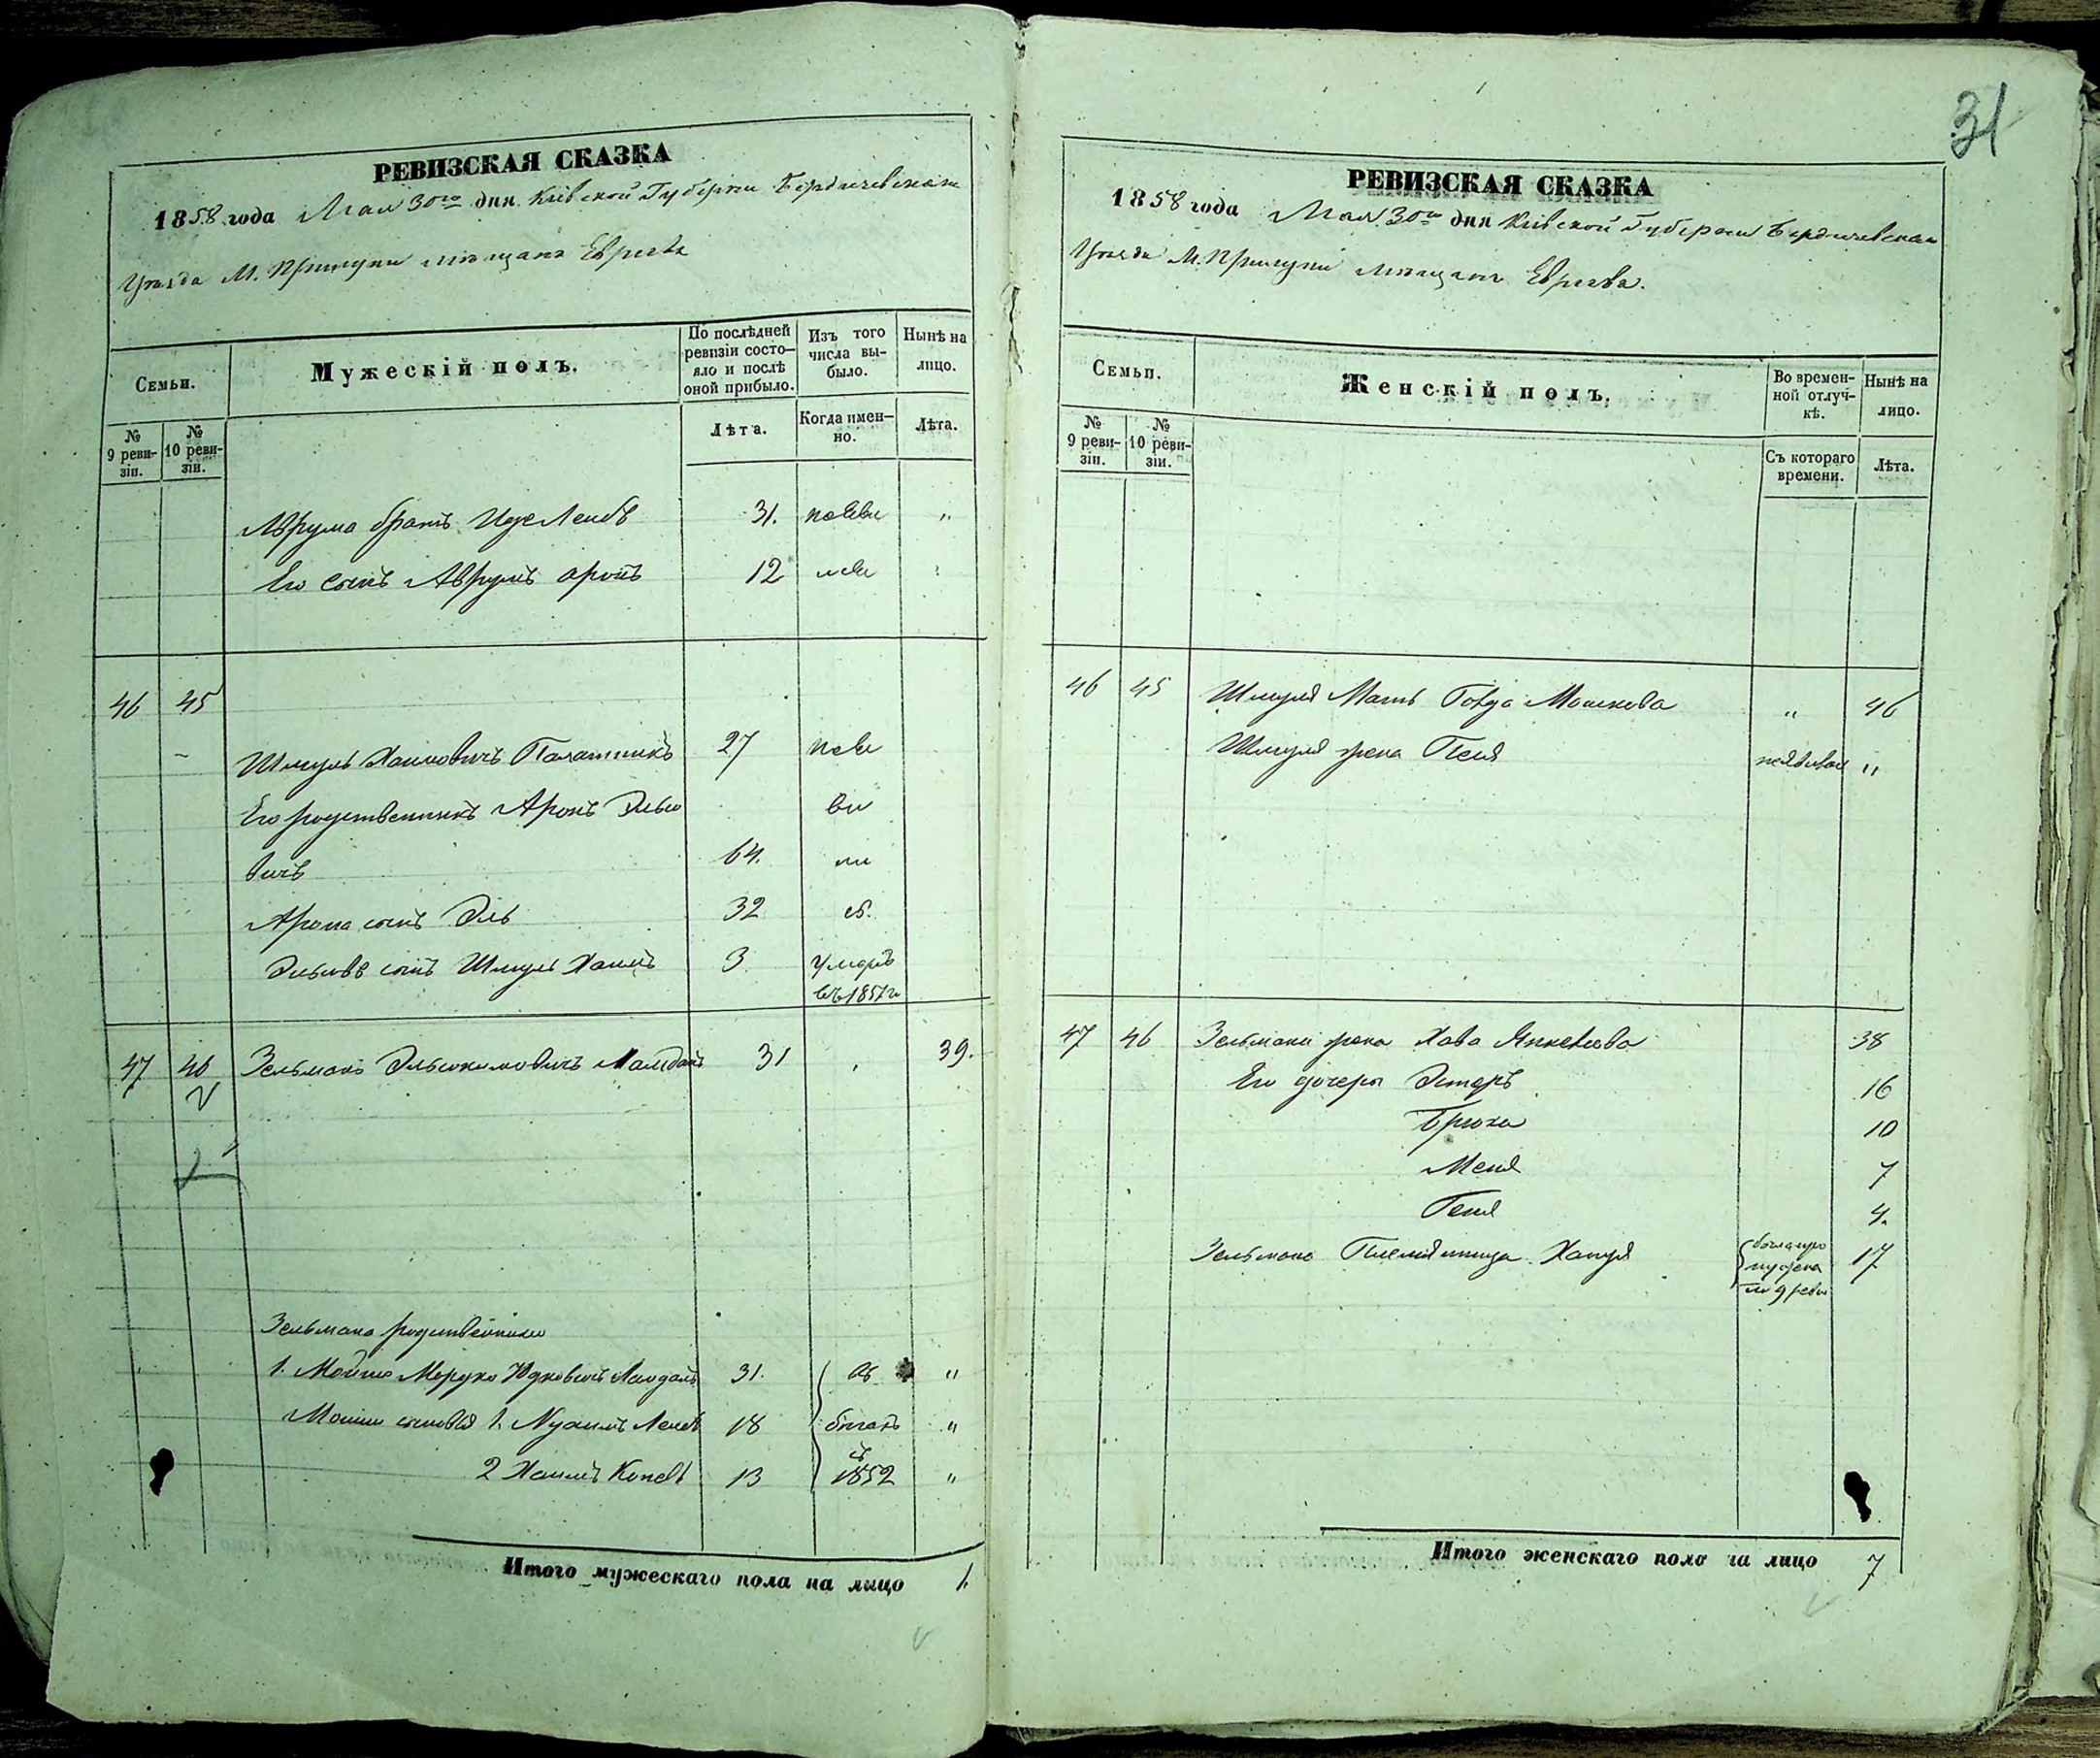 РЕВИЗСКАЯ СКАЗКА
1858 года Мая 30го дня Кіевской Губерніи Бердичевскаго
Уѣзда М. Прилуки мѣщанъ Евреевъ
Семьи.
Мужескій полъ.
По послѣдней ревизіи состояло и послѣ оной прибыло.
Изъ того числа выбыло.
Нынѣ на лицо.
№ 9 ревизіи.
№ 10 ревизіи.
Лѣта.
Когда именно.
Лѣта.
Аврума братъ Лейбъ 31. "
Его сынъ Аврумъ Аронъ 12
46 45
Шмуль Хаимовичъ Палатникъ 27
Его родственникъ Аронъ Элье
вичъ 64.
Арона сынъ Эль 32
Эльовъ сынъ Шмуль Хаимъ 3 умеръ
въ 1857 г
47 46 Зельманъ Эльокимовичъ Ламданъ 31 39.
Зельмана родственники
1. Мойше Юдковичъ Ламданъ 31. "
Мошки сыновья 1. Лейбъ 18 "
2 Хаимъ 13 1852 "
Итого мужескаго пола на лицо 1.
31
РЕВИЗСКАЯ СКАЗКА
1858 года Мая 30го дня Кіевской Губерніи Бердичевскаго
Уѣзда М. Прилуки мѣщанъ Евреевъ.
Семьи.
Женскій полъ.
Во временной отлучкѣ.
Нынѣ на лицо.
№ 9 ревизіи.
№ 10 ревизіи.
Съ котораго времени.
Лѣта.
46 45 Шмуля Мать Мошкова " 46
Шмуля жена Песя "
47 46 Зельмана жена Хава Янкелева 38
Его дочери Эстеръ 16
Брюха 10
Меня 7
Геня 4.
Зельмана Племянница 17
Итого женскаго пола на лицо 7